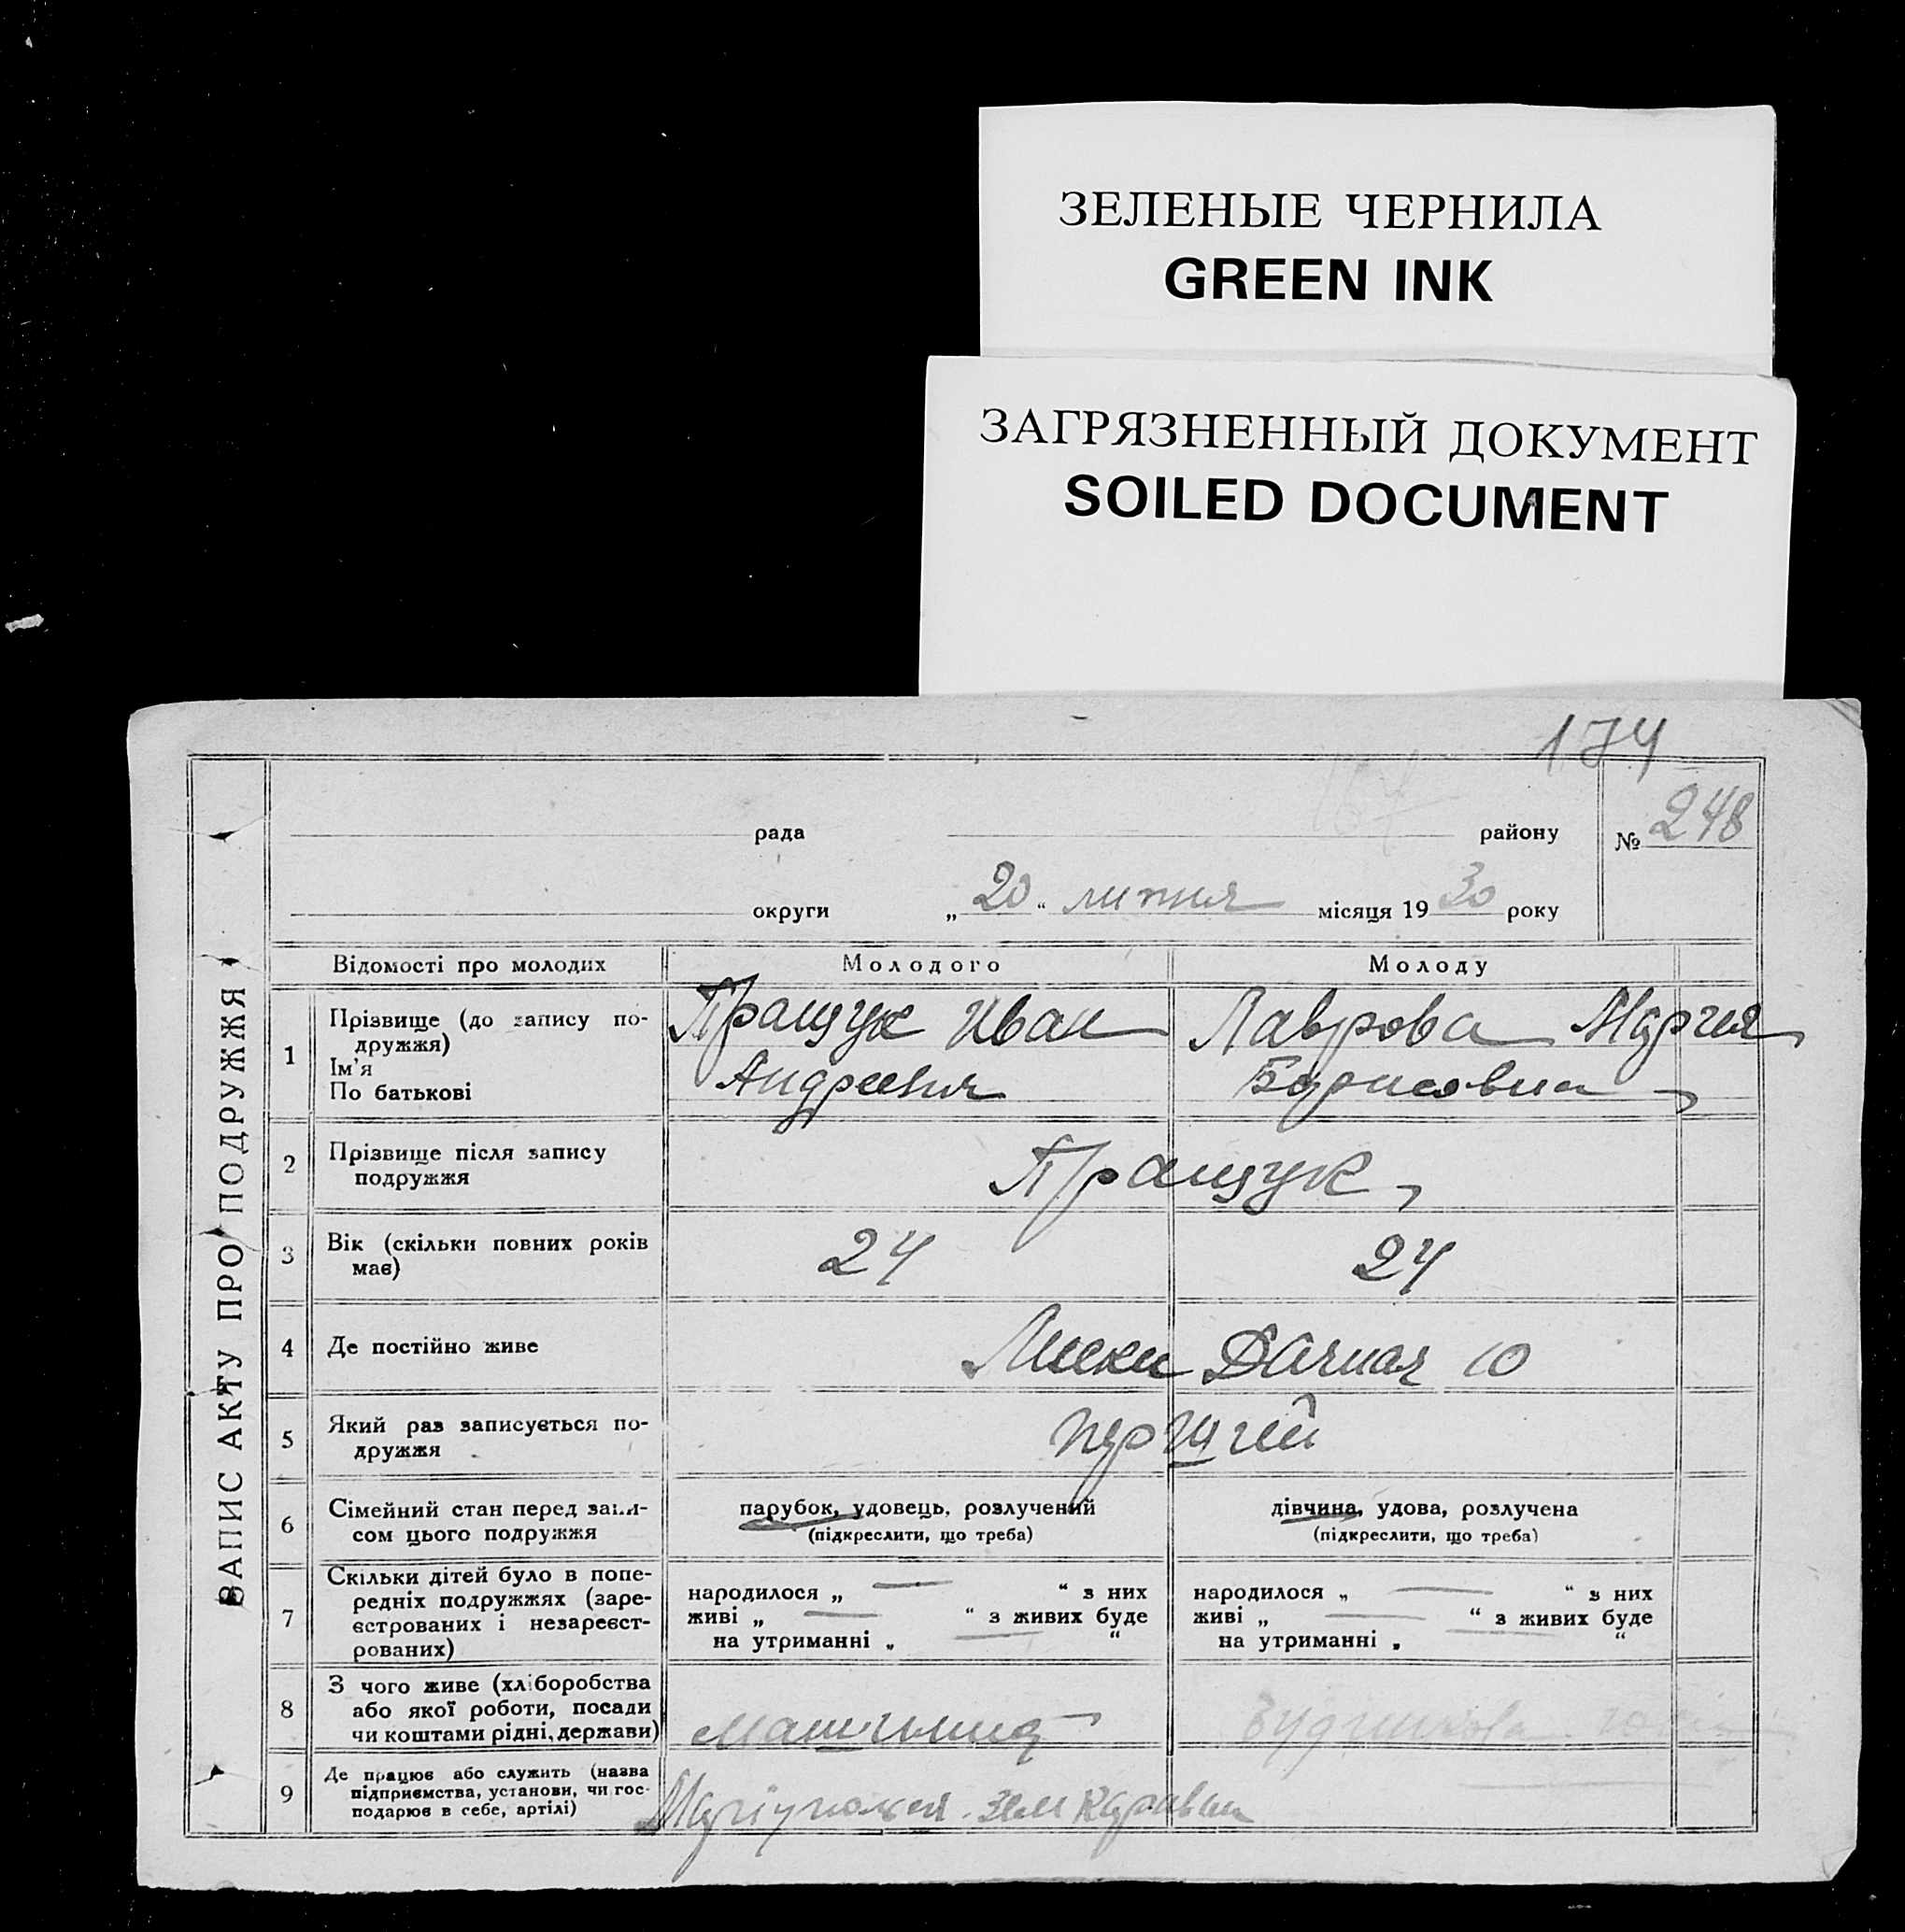 ЗЕЛЕНЫЕ ЧЕРНИЛА
GREEN INK
ЗАГРЯЗНЕННЫЙ ДОКУМЕНТ
SOILED DOCUMENT
174
рада района № 248
округи „20“ липня місяця 1930 року
ЗАПИС АКТУ ПРО ПОДРУЖЖЯ
Відомості про молодих Молодого Молоду
1 Прізвище (до запису по-
дружжя)
Ім’я
По батькові
Пращук Иван
Андреевич
Лаврова Мария
Борисовна
2 Прізвище після запису
подружжя
Пращук
3 Вік (скільки повних років
має)
24 24
4 Де постійно живе
Дачная 10
5 Який раз записується по-
дружжя
перший
6 Сімейний стан перед запи-
сом цього подружжя
парубок, удовець, розлучений
(підкреслити, що треба)
дівчина, удова, розлучена
(підкреслити, що треба)
7 Скільки дітей було в попе-
редніх подружжях (заре-
єстрованих і незареєст-
рованих)
народилося „ “ з них
живі „ “ з живих буде
на утриманні „ “
народилося „ “ з них
живі „ “ з живих буде
на утриманні „ “
8 З чого живе (хліборобства
або якої роботи, посади
чи коштами рідні, держави)
9 Де працює або служить (назва
підприємства, установи, чи гос-
подарює в себе, артілі)